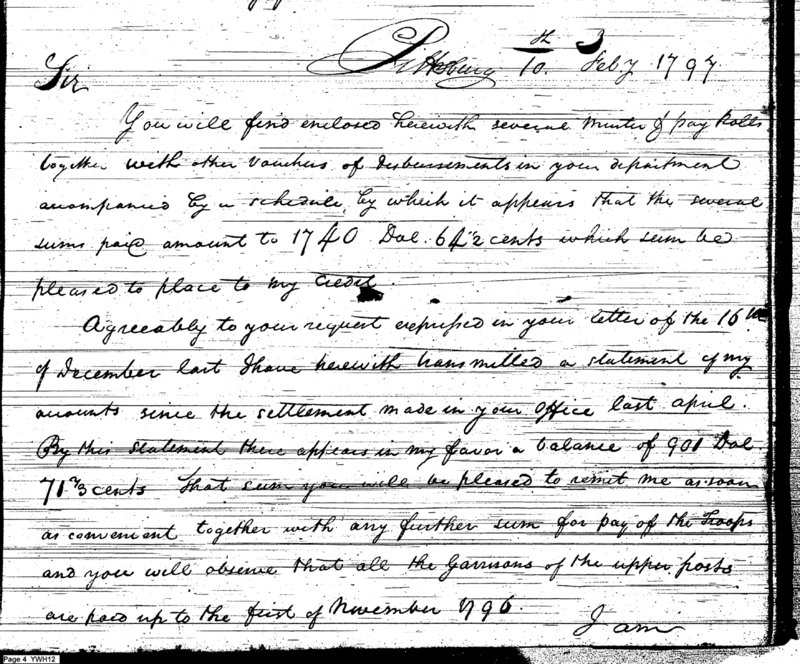 Pittsburg 10th Feby 1797
Sir
You will find enclosed herewith several muster & pay Rolls
together with other Vouchers of disbursements in your department
accompanied by a schedule, by which it appears that the several
sums paid amount to 1740 Dol. 64 1/2 cents which sum be
pleased to place to my credit.
Agreeably to your request expressed in your letter of the 16th
of December last I have herewith transmitted a statement of my
accounts since the settlement made in your office last april.
By this statement there appears in my favor a balance of 901 Dol
71 2/3 cents That sum you will be pleased to remit me as soon
as convenient together with any further sum for pay of the Troops
and you will observe that all the Garrisons of the upper posts
are paid up to the first of November 1796.
I am
Page 4 YWH12